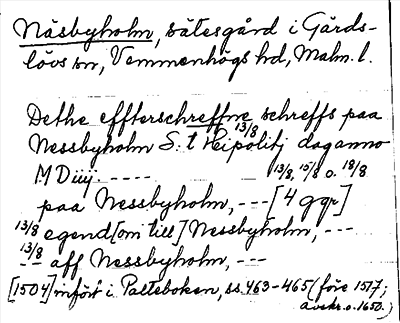 Näsbyholm, sätesgård i Gärds-
lövs sn, Vemmenhögs hd, Malm. l.
Dethe effterschreffne schreffs paa
13/8
Nessbyholm S:t Hipolitj dag anno
M Diiij. ----- 13/8, 15/8 o. 18/8
paa Nessbyholm, --- [4 ggr]
13/8 egend [om till] Nessbyholm, ---
13/8 -- aff Nessbyholm, ---
[1504] infört i Palteboken, ss. 463-465 (före 1517;
avskr. o. 1650.)